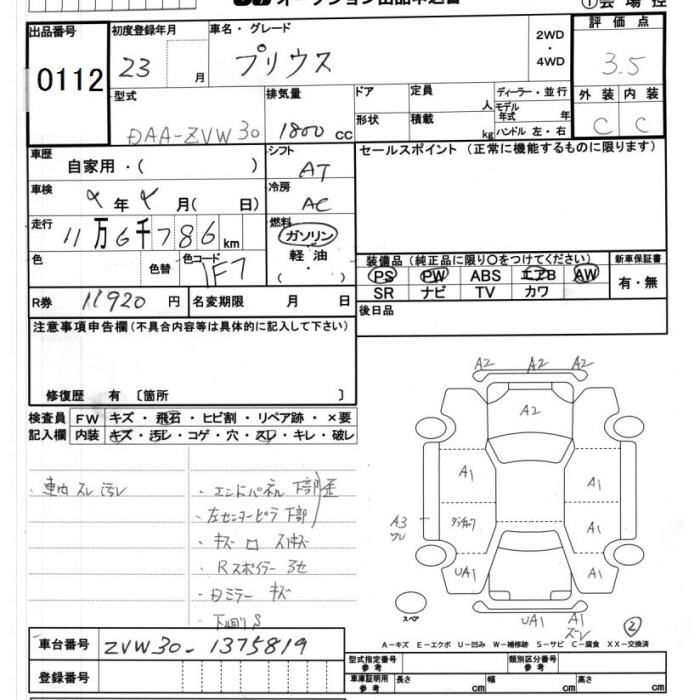 オークション出品申込書
①会場控
出品番号
0112
初度登録年月
23 月
車名・グレード
プリウス
2WD
・
4WD
評価点
3.5
型式
DAA-ZVW30
排気量
1800 cc
ドア
定員 人
ディーラー・並行
モデル年式 年
形状
積載 kg
ハンドル 左・右
外装 内装
C C
車歴
自家用・( )
シフト
AT
セールスポイント (正常に機能するものに限ります)
車検
年 月( 日)
冷房
AC
走行
11万6千786km
燃料
ガソリン
軽油
( ・ )
色
色替
色コード
1F7
装備品 (純正品に限り○をつけてください)
PS PW ABS エアB AW
SR ナビ TV カワ
新車保証書
有・無
R券 11920 円
名変期限 月 日
後日品
注意事項申告欄(不具合内容等は具体的に記入して下さい)
修復歴 有 〔箇所 〕
検査員 FW キズ・飛石・ヒビ割・リペア跡・×要
記入欄 内装 キズ・汚レ・コゲ・穴・スレ・キレ・破レ
・車内 スレ 汚レ
・エンドパネル下部歪
・左センターピラ下部
・キズ
・Rスポイラー
・ミラー キズ
・下廻りS
A2 A2 A2
A2
A1 A1
A3
A1
UA1 A1
UA1 A1
スペア
②
A-キズ E-エクボ U-凹み W-補修跡 S-サビ C-腐食 XX-交換済
車台番号 ZVW30-1375819
登録番号
型式指定番号
参考
類別区分番号
参考
車庫証明用
参考
長さ cm 幅 cm 高さ cm